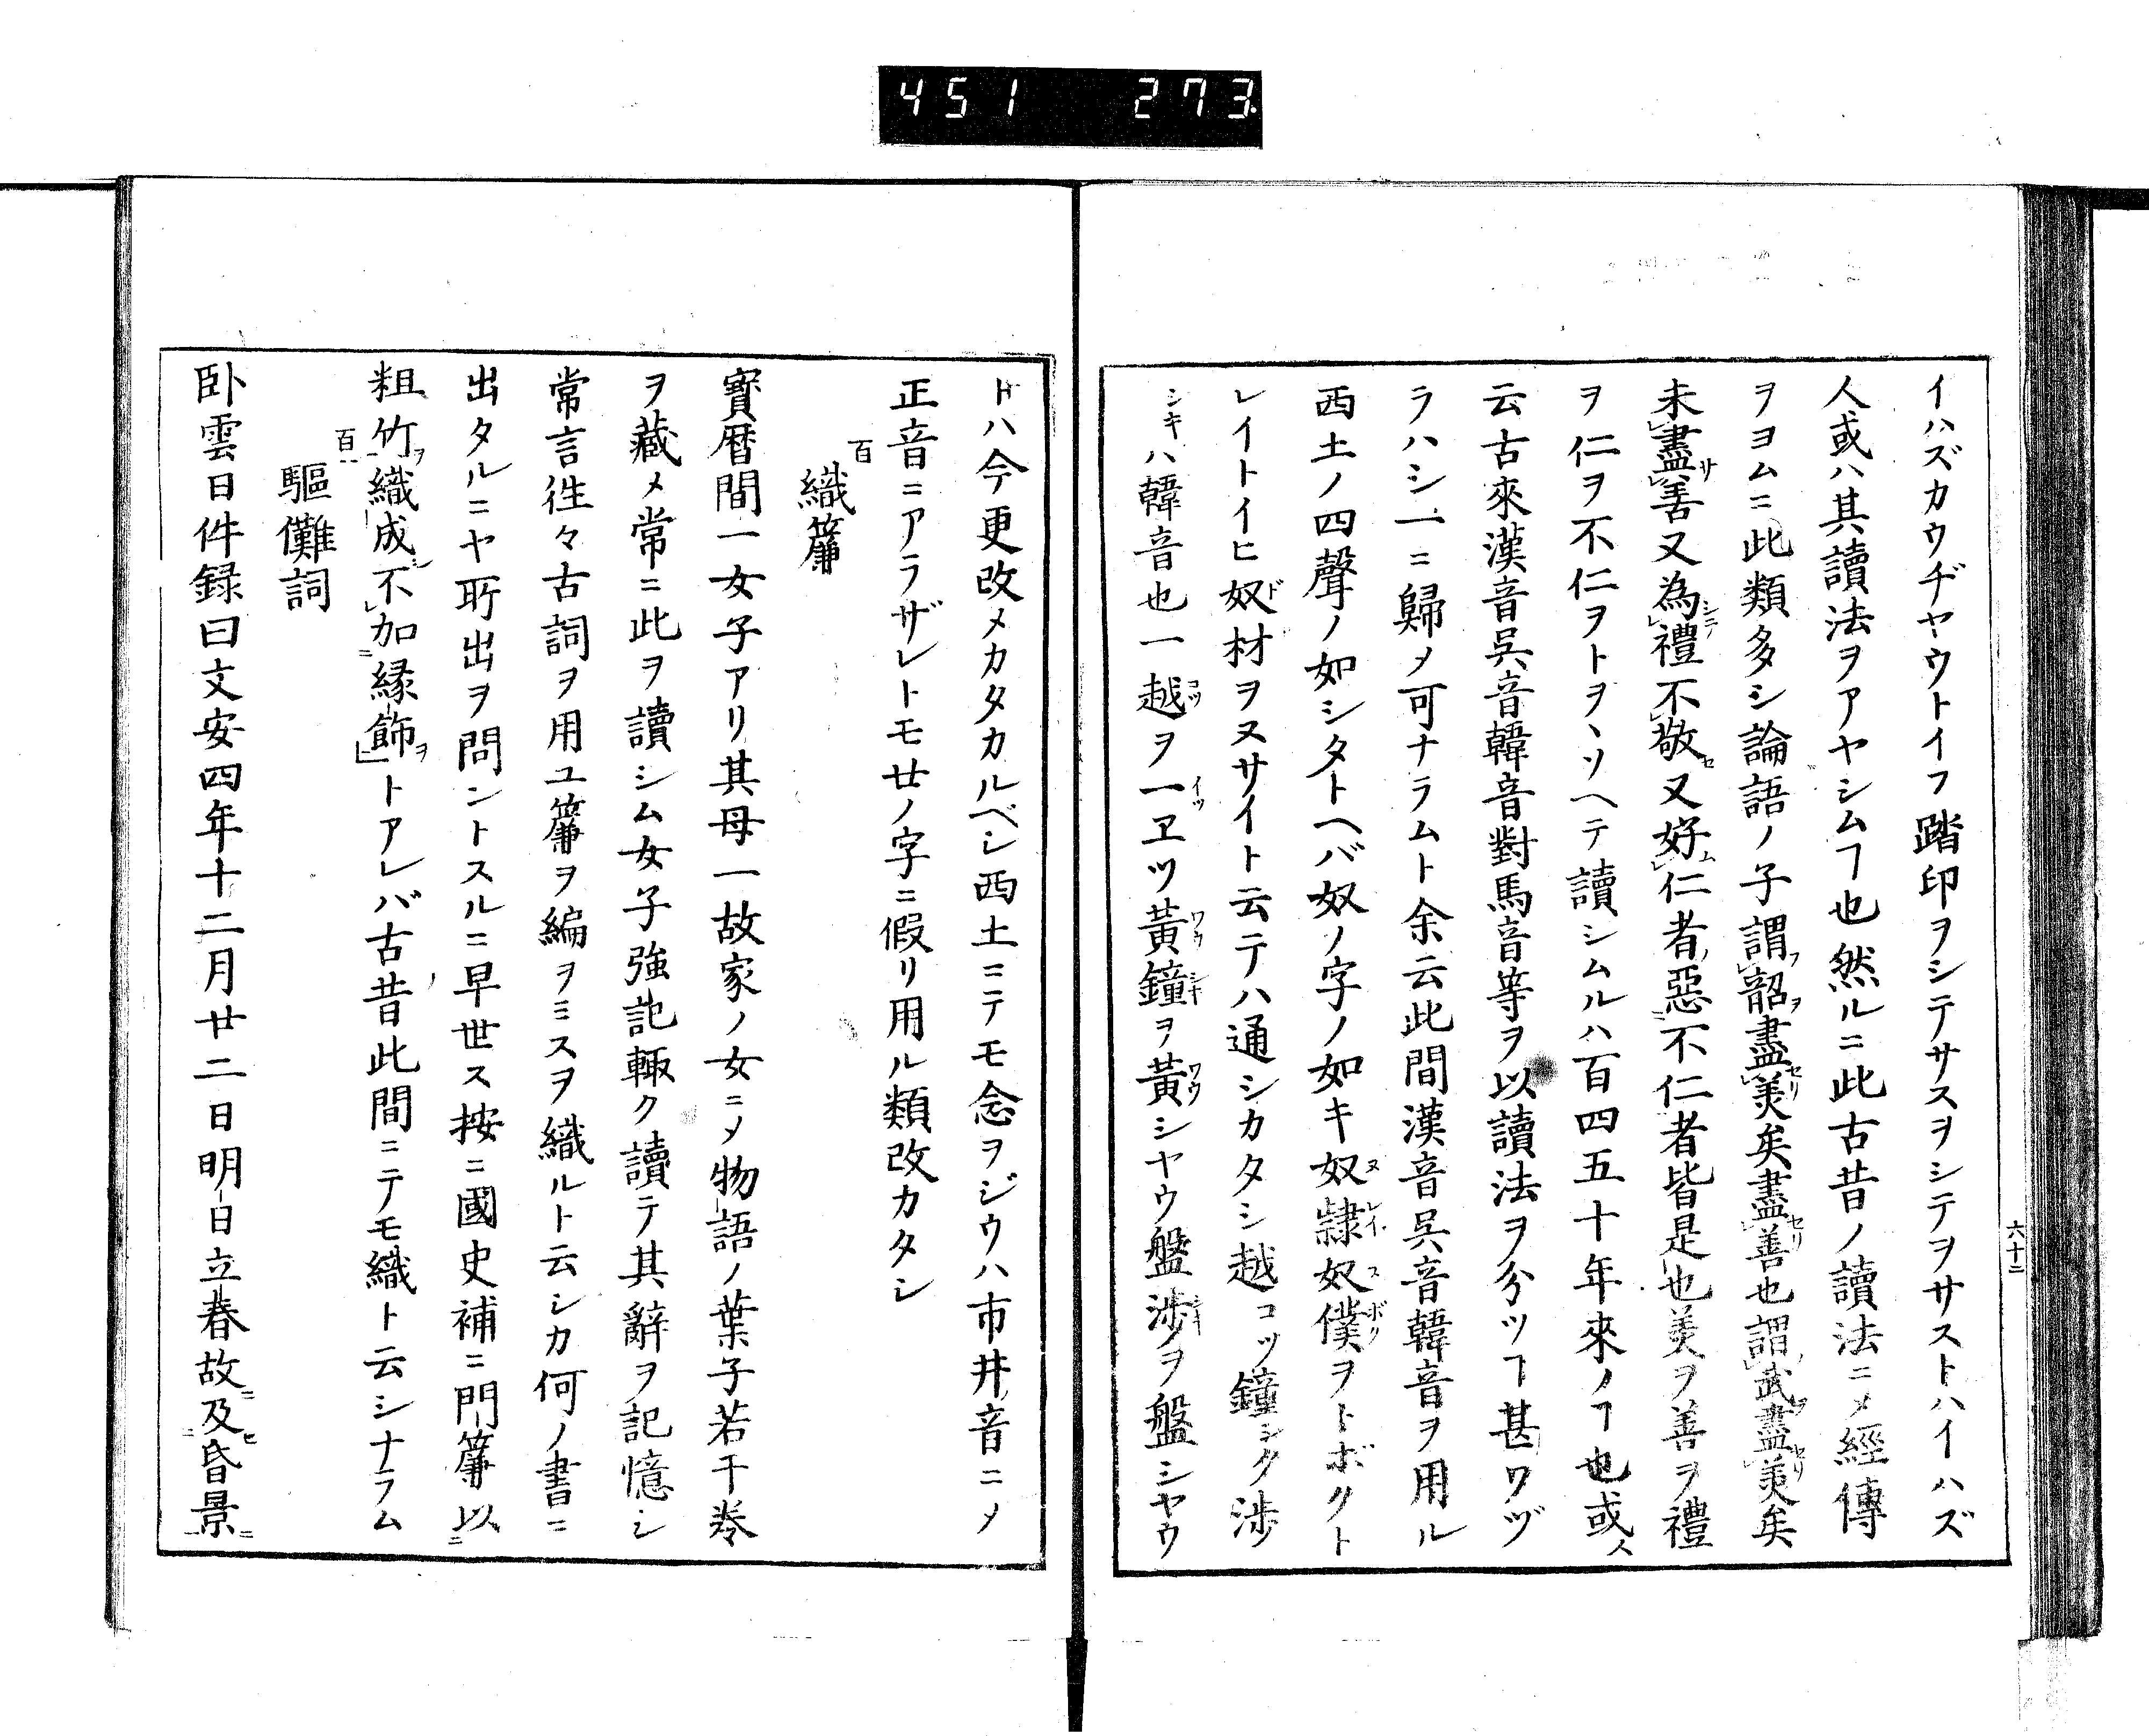 451 273
六十二
イハズカウヂヤウトイフ踏印ヲシテサスヲシテヲサストハイハズ
人或ハ其讀法ヲアヤシムヿ也然ルニ此古昔ノ讀法ニメ經傳
ヲヨムニ此類多シ論語ノ子謂韶盡美矣盡善也謂武盡美矣
未盡善又為禮不敬又好仁者惡不仁者皆是也美ヲ善ヲ禮
ヲ仁ヲ不仁ヲトヲヽソヘテ讀シムルハ百四五十年來ノヿ也或人
云古來漢音呉音韓音對馬音等ヲ以讀法ヲ分ツヿ甚ワヅ
ラハシ一ニ歸メ可ナラムト余云此間漢音呉音韓音ヲ用ル
西土ノ四聲ノ如シタトヘバ奴ノ字ノ如キ奴隷奴僕ヲトボクト
レイトイヒ奴材ヲヌサイト云テハ通シカタシ越コツ鐘シク渉
シキハ韓音也一越ヲ一ヱツ黃鐘ヲ黃シヤウ盤渉ヲ盤シヤウ
ドハ今更改メカタカルベシ西土ニテモ念ヲジウハ市井ノ音ニメ
正音ニアラザレトモ廿ノ字ニ假リ用ル類改カタシ
百 織簾
寶暦間一女子アリ其母一故家ノ女ニメ物語ノ葉子若干巻
ヲ藏メ常ニ此ヲ讀シム女子強記輙ク讀テ其辭ヲ記憶シ
常言徃々古詞ヲ用ユ簾ヲ編ヲミスヲ織ルト云シカ何ノ書ニ
出タルニヤ所出ヲ問ントスルニ早世ス按ニ國史補ニ門簾以
粗竹織成不加縁飾トアレバ古昔此間ニテモ織ト云シナラム
百一 驅儺詞
臥雲日件録曰文安四年十二月廿二日明日立春故及昏景